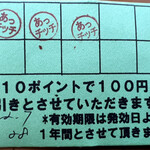 あっチッチ あっチッチ あっチッチ
10ポイントで100円
引きとさせていただきます
*有効期限は発効日よ
1年間とさせて頂きま